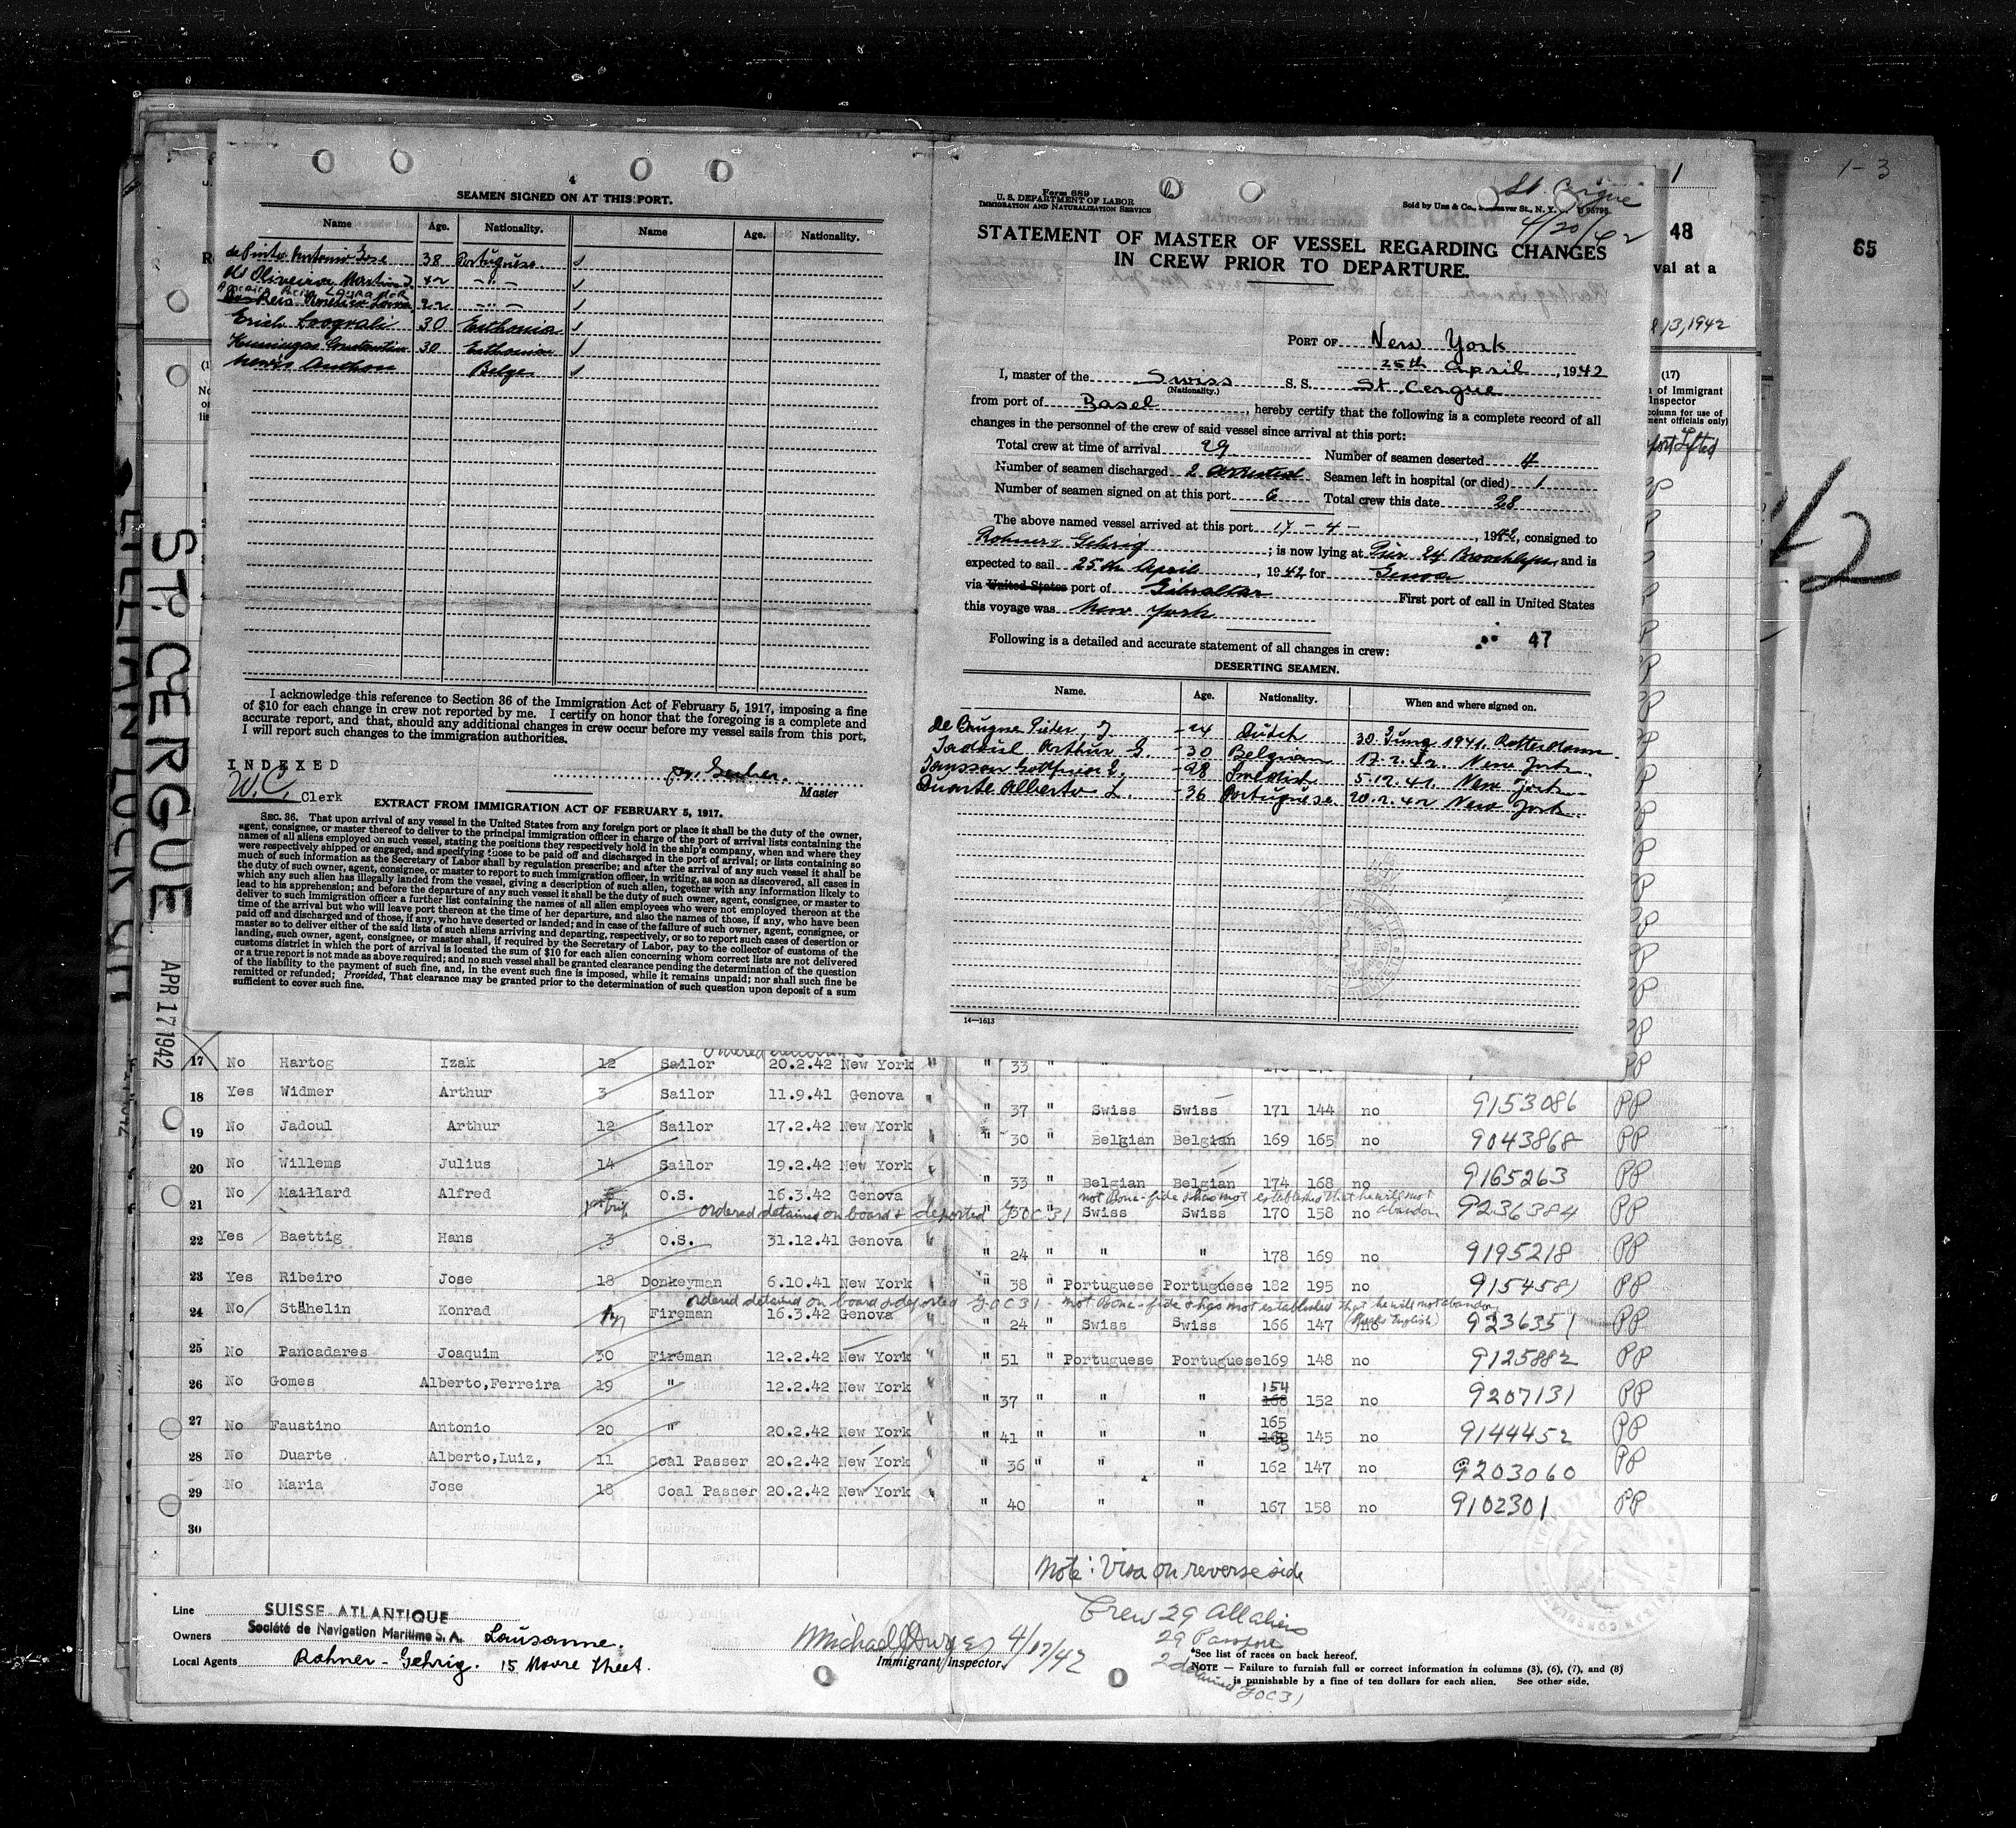 4
SEAMEN SIGNED ON AT THIS PORT.
Name Age. Nationality. Name Age. Nationality.
de Pinto Antonio Jose 38 Portuguese ✓
de Oliveira Martins J. 42 -"- ✓
22 -"- ✓
Erich 30 Esthonia ✓
Constantin 30 Esthonia ✓
Belge ✓
I acknowledge this reference to Section 36 of the Immigration Act of February 5, 1917, imposing a fine
of $10 for each change in crew not reported by me. I certify on honor that the foregoing is a complete and
accurate report, and that, should any additional changes in crew occur before my vessel sails from this port,
I will report such changes to the immigration authorities.
INDEXED
W.C. Clerk
Master
EXTRACT FROM IMMIGRATION ACT OF FEBRUARY 5, 1917.
SEC. 36. That upon arrival of any vessel in the United States from any foreign port or place it shall be the duty of the owner,
agent, consignee, or master thereof to deliver to the principal immigration officer in charge of the port of arrival lists containing the
names of all aliens employed on such vessel, stating the positions they respectively hold in the ship's company, when and where they
were respectively shipped or engaged, and specifying those to be paid off and discharged in the port of arrival; or lists containing so
much of such information as the Secretary of Labor shall by regulation prescribe; and after the arrival of any such vessel it shall be
the duty of such owner, agent, consignee, or master to report to such immigration officer, in writing, as soon as discovered, all cases in
which any such alien has illegally landed from the vessel, giving a description of such alien, together with any information likely to
lead to his apprehension; and before the departure of any such vessel it shall be the duty of such owner, agent, consignee, or master to
deliver to such immigration officer a further list containing the names of all alien employees who were not employed thereon at the
time of the arrival but who will leave port thereon at the time of her departure, and also the names of those, if any, who have been
paid off and discharged and of those, if any, who have deserted or landed; and in case of the failure of such owner, agent, consignee, or
master so to deliver either of the said lists of such aliens arriving and departing, respectively, or so to report such cases of desertion or
landing, such owner, agent, consignee, or master shall, if required by the Secretary of Labor, pay to the collector of customs of the
customs district in which the port of arrival is located the sum of $10 for each alien concerning whom correct lists are not delivered
or a true report is not made as above required; and no such vessel shall be granted clearance pending the determination of the question
of the liability to the payment of such fine, and, in the event such fine is imposed, while it remains unpaid; nor shall such fine be
remitted or refunded; Provided, That clearance may be granted prior to the determination of such question upon deposit of a sum
sufficient to cover such fine.
Form 689
U. S. DEPARTMENT OF LABOR
IMMIGRATION AND NATURALIZATION SERVICE
St. Cergue
4/20/42
STATEMENT OF MASTER OF VESSEL REGARDING CHANGES
IN CREW PRIOR TO DEPARTURE.
PORT OF New York
25th April, 1942
I, master of the Swiss S. S. St. Cergue
(Nationality.)
from port of Basel, hereby certify that the following is a complete record of all
changes in the personnel of the crew of said vessel since arrival at this port:
Total crew at time of arrival 29 Number of seamen deserted 4
Number of seamen discharged 2 arrested Seamen left in hospital (or died) 1
Number of seamen signed on at this port 6 Total crew this date 28
The above named vessel arrived at this port 17 - 4 -, 1942, consigned to
Rohner & Gehrig; is now lying at Pier 24 Brooklyn, and is
expected to sail 25th April, 1942 for Genoa
via United States port of Gibraltar First port of call in United States
this voyage was New York
47
Following is a detailed and accurate statement of all changes in crew:
DESERTING SEAMEN.
Name. Age. Nationality. When and where signed on.
Pieter, J. -24 Dutch 30. June 1941. Rotterdam
Jadoul Arthur G. -30 Belgian 17.2.42. New York.
Jansson -28 Swedish 5.12.41. New York
Duarte Alberto L. -36 Portuguese 20.2.42 New York
14—1613
1
48
val at a
13,1942
(17)
of Immigrant
Inspector
column for use of
ment officials only)
1-3
65
ST. CERGUE
APR 17 1942
17 No Hartog Izak 12 Sailor 20.2.42 New York " " 33 "
18 Yes Widmer Arthur 3 Sailor 11.9.41 Genova " " 37 " Swiss Swiss 171 144 no 9153086 PP
19 No Jadoul Arthur 12 Sailor 17.2.42 New York " " 30 " Belgian Belgian 169 165 no 9043868 PP
20 No Willems Julius 14 Sailor 19.2.42 New York " " 33 " Belgian Belgian 174 168 no 9165263 PP
not Bona-fide & has not established that he will not abandon
21 No Maillard Alfred O.S. 16.3.42 Genova " 30 " Swiss Swiss 170 158 no 9236384 PP
ordered detained on board & deported GOC31
22 Yes Baettig Hans 3 O.S. 31.12.41 Genova " " 24 " " " 178 169 no 9195218 PP
23 Yes Ribeiro Jose 18 Donkeyman 6.10.41 New York " 38 " Portuguese Portuguese 182 195 no 9154581 PP
ordered detained on board & deported GOC31 - not Bona-fide & has not established that he will not abandon
24 No Stähelin Konrad Fireman 16.3.42 Genova " 24 " Swiss Swiss 166 147 no (Speaks English) 9236351 PP
25 No Pancadares Joaquim 30 Fireman 12.2.42 New York " " 51 " Portuguese Portuguese 169 148 no 9125882 PP
26 No Gomes Alberto,Ferreira 19 " 12.2.42 New York " " 37 " " " 154 152 no 9207131 PP
27 No Faustino Antonio 20 " 20.2.42 New York " " 41 " " " 165 145 no 9144452 PP
28 No Duarte Alberto,Luiz, 11 Coal Passer 20.2.42 New York " " 36 " " " 162 147 no 9203060 PP
29 No Maria Jose 18 Coal Passer 20.2.42 New York " " 40 " " 167 158 no 9102301 PP
30
Note: Visa on reverse side
Crew 29 All aliens
29 Passport
2 detained GOC31
Line SUISSE-ATLANTIQUE
Owners Société de Navigation Maritime S. A. Lausanne.
Local Agents Rohner - Gehrig. 15 Moore Street.
Michael 4/17/42
Immigrant Inspector.
*See list of races on back hereof.
NOTE — Failure to furnish full or correct information in columns (3), (6), (7), and (8)
is punishable by a fine of ten dollars for each alien. See other side.